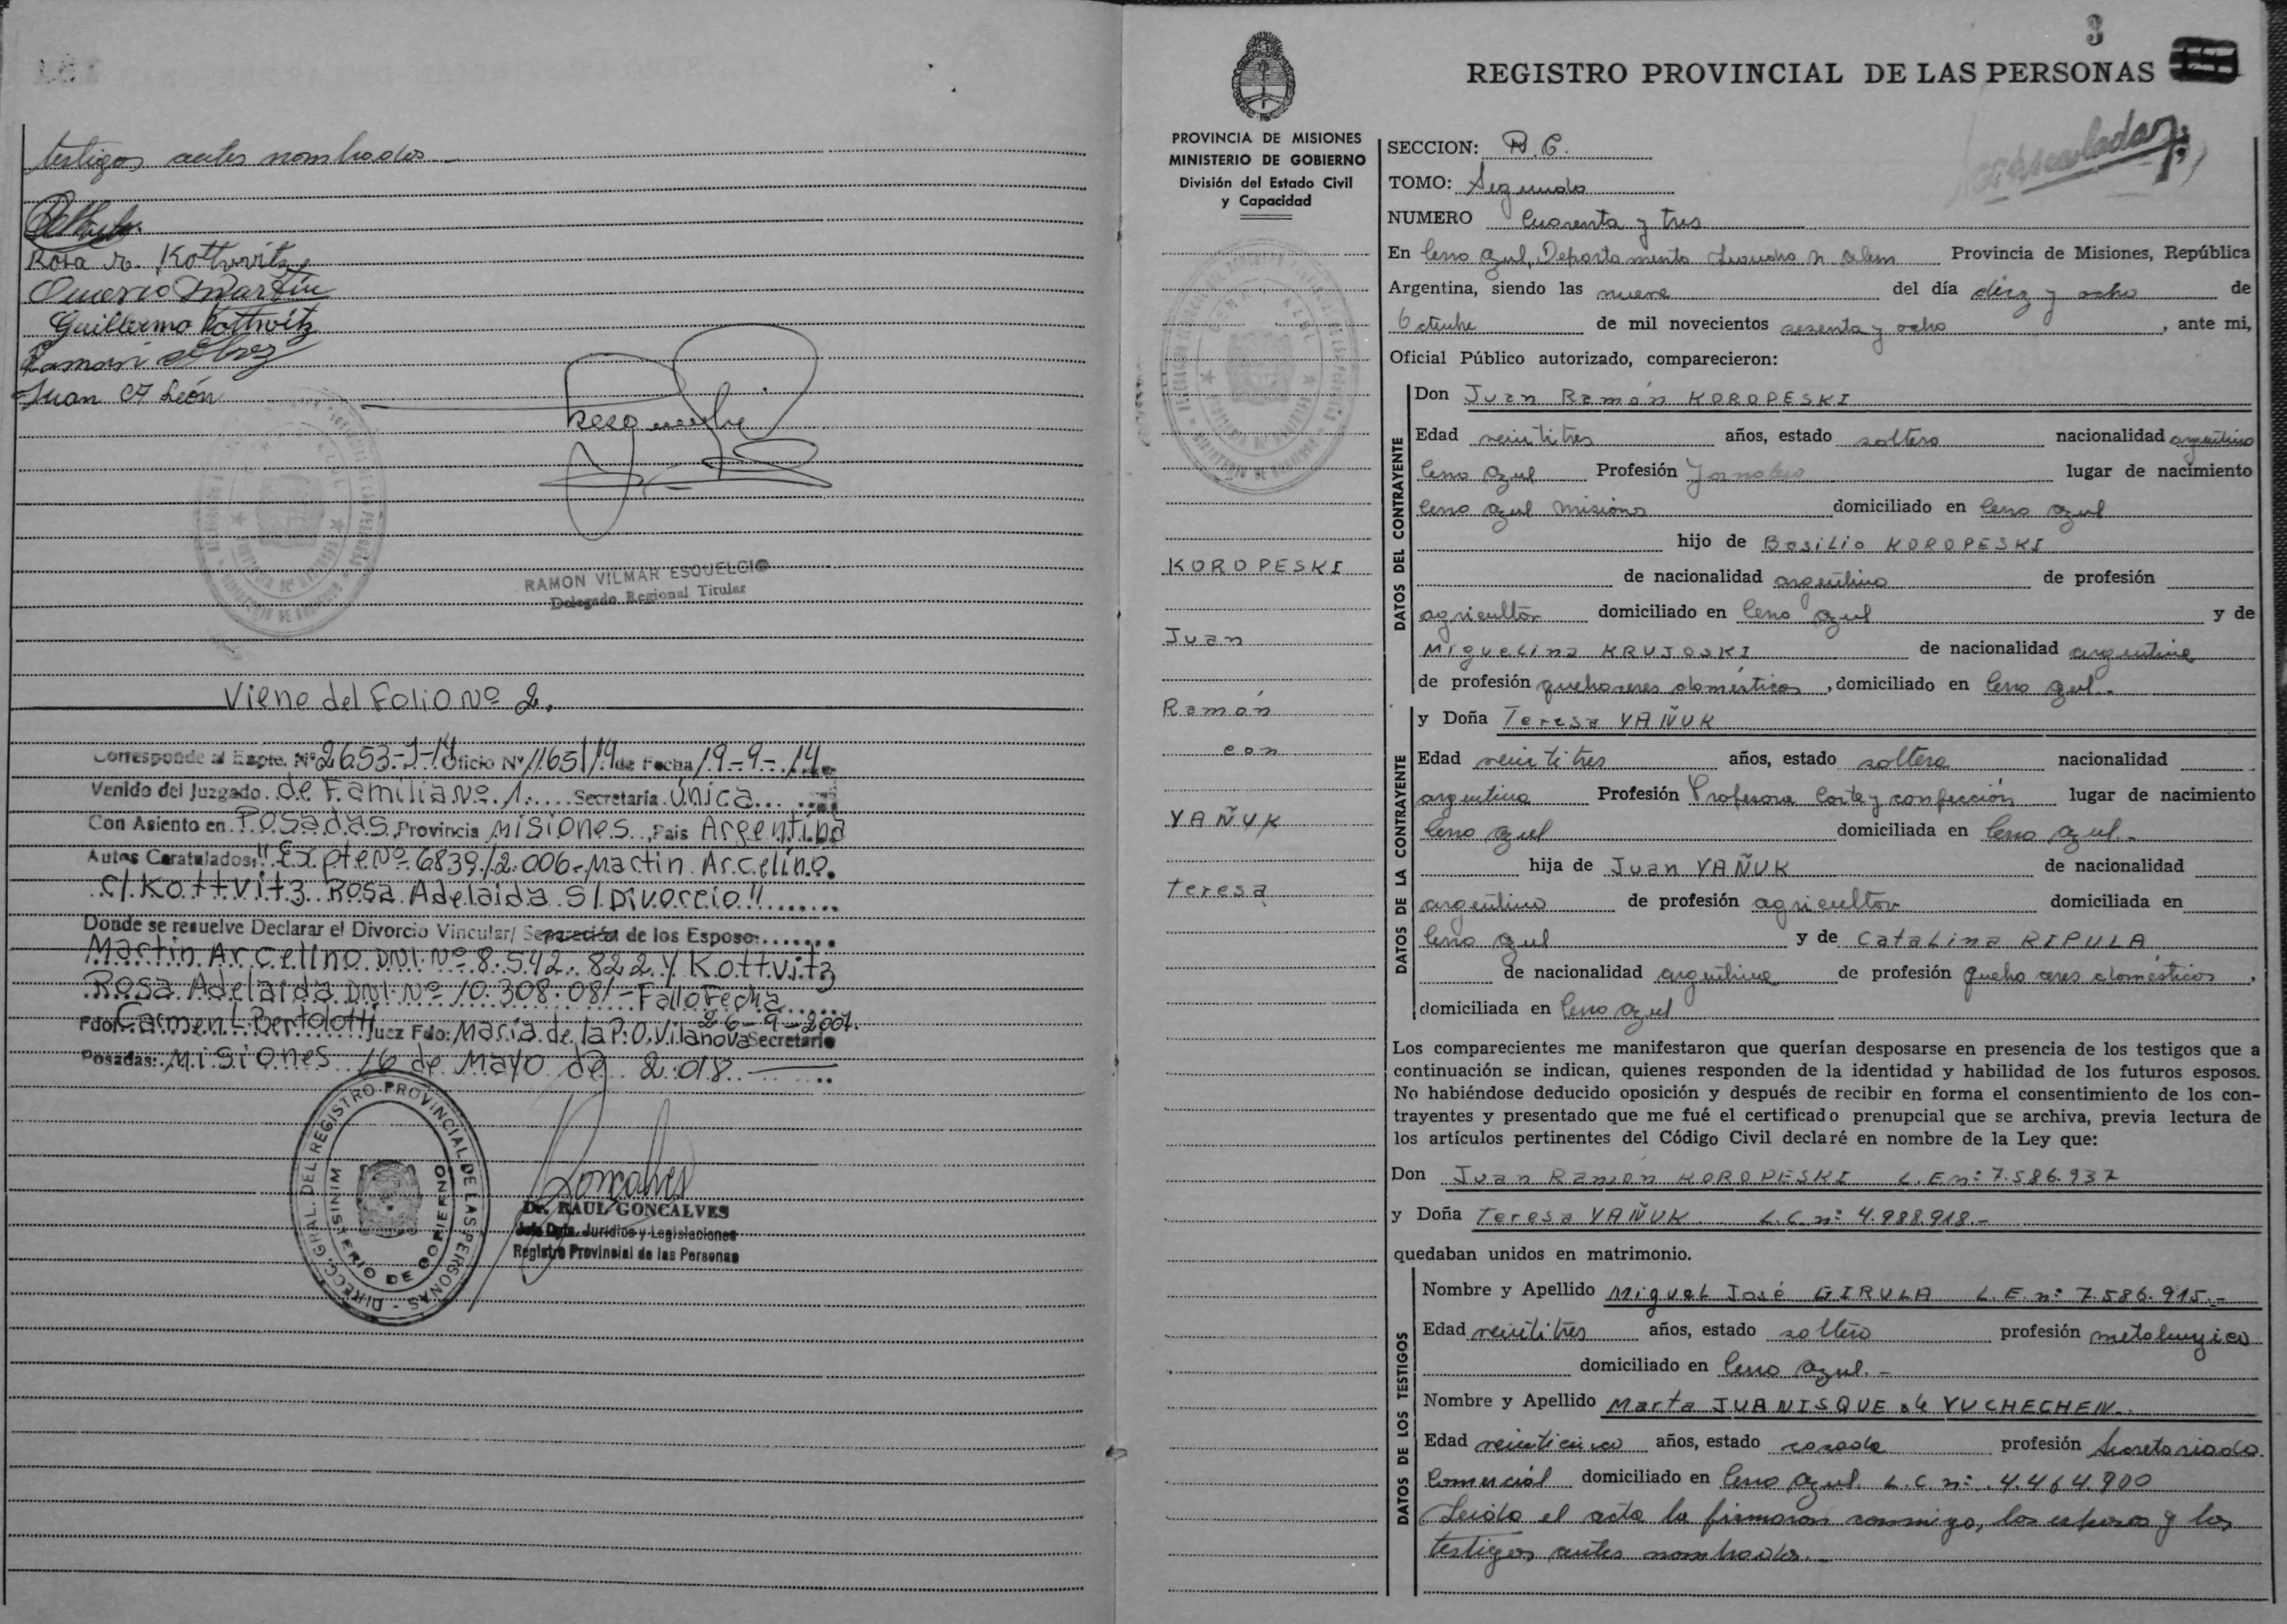 testigos antes nombrados
Rosa A. Kottwitz
Martin
Guillermo Kottvitz
Ramon
Juan A León
RAMON VILMAR ESQUELCIO
Delegado Regional Titular
Viene del Folio Nº 2.
Corresponde al Expte. Nº 2653-J-14 Oficio Nº 1165/14 de Fecha 19-9-14
Venido del Juzgado de Familia Nº 1 Secretaría Única
Con Asiento en Posadas, Provincia Misiones, Pais Argentina
Autos Caratulados: "Expte Nº 6839/2.006-Martin Arcelino.
C/ Kottvitz Rosa Adelaida S/ Divorcio"
Donde se resuelve Declarar el Divorcio Vincular/ Separación de los Esposo:
Martin Arcelino DNI Nº 8.542.822 y Kottvitz
Rosa Adelaida DNI Nº 10.308.081-Fallo Fecha
26-9-2007.
Fdo: Carmen L. Bertolotti Juez Fdo: Maria de la P. O. Vilanova Secretario
Posadas: Misiones 16 de Mayo de 2.018.
DIRECC. GRAL. DEL REGISTRO PROVINCIAL DE LAS PERSONAS
MINISTERIO DE GOBIERNO
Goncalves
Dr. RAUL GONCALVES
Jefe Dpto. Jurídico y Legislaciones
Registro Provincial de las Personas
3
REGISTRO PROVINCIAL DE LAS PERSONAS
PROVINCIA DE MISIONES
MINISTERIO DE GOBIERNO
División del Estado Civil
y Capacidad
KOROPESKI
Juan
Ramón
con
YAÑUK
Teresa
SECCION: R.C.
TOMO: Segundo
NUMERO Cuarenta y tres
En Cerro Azul, Departamento Leandro N Alem Provincia de Misiones, República
Argentina, siendo las nueve del día diez y ocho de
Octubre de mil novecientos sesenta y ocho, ante mi,
Oficial Público autorizado, comparecieron:
DATOS DEL CONTRAYENTE
Don Juan Ramón KOROPESKI
Edad veintitres años, estado soltero nacionalidad argentino
Cerro Azul Profesión Jornalero lugar de nacimiento
Cerro Azul Misiones domiciliado en Cerro Azul
hijo de Basilio KOROPESKI
de nacionalidad argentino de profesión
agricultor domiciliado en Cerro Azul y de
Miguelina KRUJOSKI de nacionalidad argentina
de profesión quehaceres domésticos, domiciliado en Cerro Azul.-
DATOS DE LA CONTRAYENTE
y Doña Teresa YAÑUK
Edad veintitres años, estado soltera nacionalidad
argentina Profesión Profesora Corte y confección lugar de nacimiento
Cerro Azul domiciliada en Cerro Azul.-
hija de Juan YAÑUK de nacionalidad
argentino de profesión agricultor domiciliada en
Cerro Azul y de Catalina RIPULA
de nacionalidad argentina de profesión quehaceres domésticos,
domiciliada en Cerro Azul
Los comparecientes me manifestaron que querían desposarse en presencia de los testigos que a
continuación se indican, quienes responden de la identidad y habilidad de los futuros esposos.
No habiéndose deducido oposición y después de recibir en forma el consentimiento de los con-
trayentes y presentado que me fué el certificado prenupcial que se archiva, previa lectura de
los artículos pertinentes del Código Civil declaré en nombre de la Ley que:
Don Juan Ramón KOROPESKI L.E nº: 7.586.937
y Doña Teresa YAÑUK L.C. nº: 4.988.918.-
quedaban unidos en matrimonio.
DATOS DE LOS TESTIGOS
Nombre y Apellido Miguel José GIRULA L.E. nº: 7.586.915.-
Edad veintitres años, estado soltero profesión metalurgico
domiciliado en Cerro Azul.-
Nombre y Apellido Marta JUANISQUE de YUCHECHEN.
Edad veinticinco años, estado casada profesión Secretariado
Comercial domiciliado en Cerro Azul L.C. nº: 4.464.900
Leida el acta la firmaron conmigo, los esposos y los
testigos antes nombrados.-